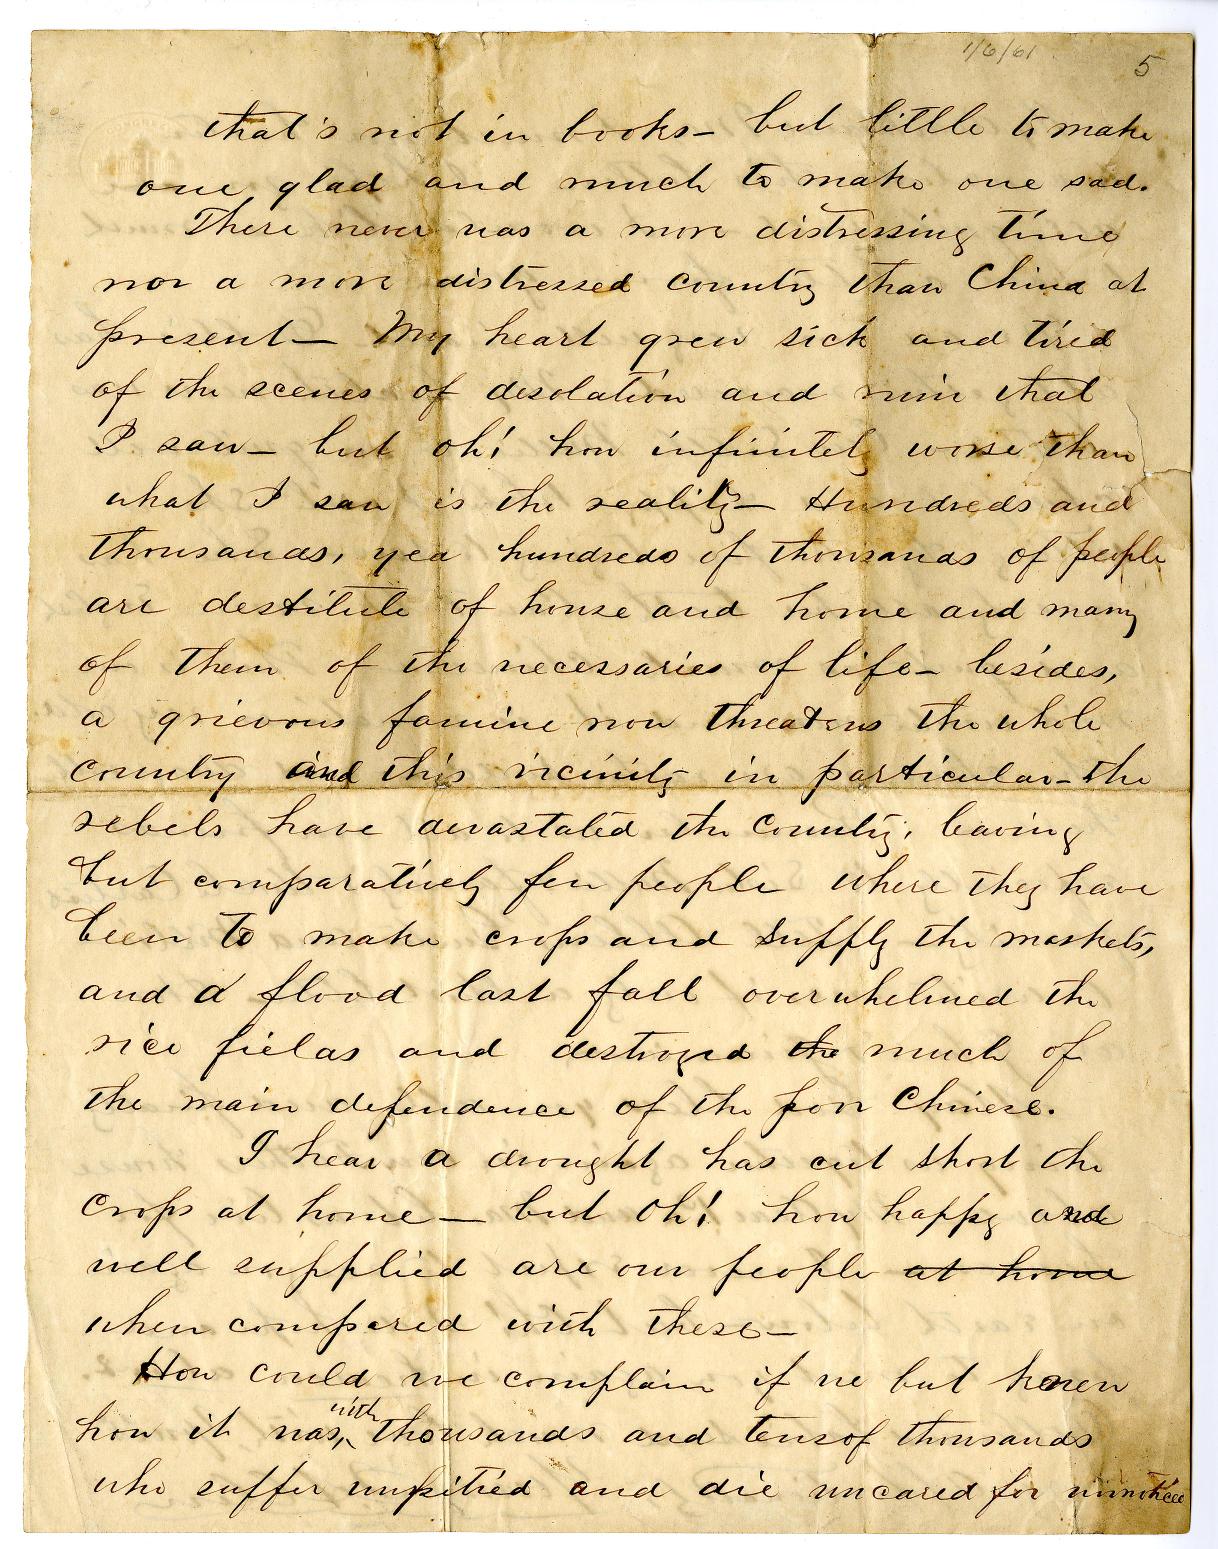 1/6/61
5
that's not in books– but little to make
one glad and much to make one sad.
There never was a more distressing time
nor a more distressed country than China at
present– My heart grew sick and tired
of the scenes of desolation and ruin that
I saw– but oh! how infinitely worse than
what I saw is the reality– Hundreds and
thousands, yea hundreds of thousands of people
are destitute of house and home and many
of them of the necessaries of life– besides,
a grievous famine now threatens the whole
country and this vicinity in particular–the
rebels have devastated the country, leaving
but comparatively few people where they have
been to make crops and supply the markets,
and a flood last fall overwhelmed the
rice fields and destroyed the much of
the main dependence of the poor Chinese.
I hear a drought has cut short the
crops at home– but oh! how happy and
well supplied are our people at home
when compared with these–
How could we complain if we but knew
how it was, with thousands and tens of thousands
who suffer unpitied and die uncared for unnoticed